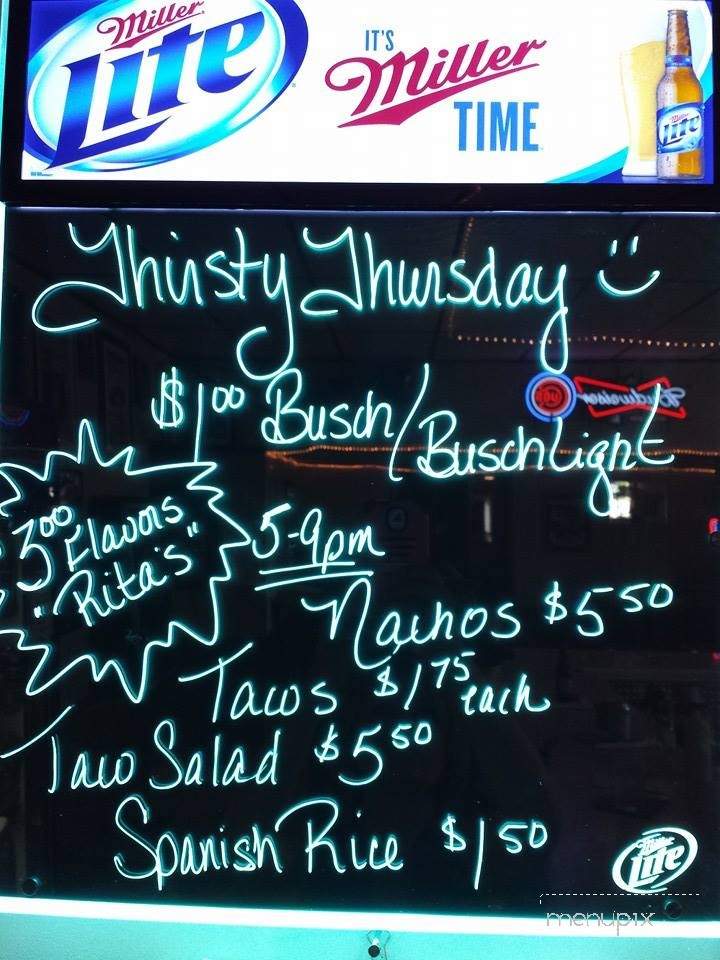 Miller
Lite
IT'S
Miller
TIME
Miller
Lite
Thirsty Thursday
$1.00 Busch/Busch Light
Budweiser
3.00 Flavors
"Rita's"
5-9pm
Nachos $5.50
Tacos $1.75 each
Taco Salad $5.50
Spanish Rice $1.50
Miller
Lite
menupix